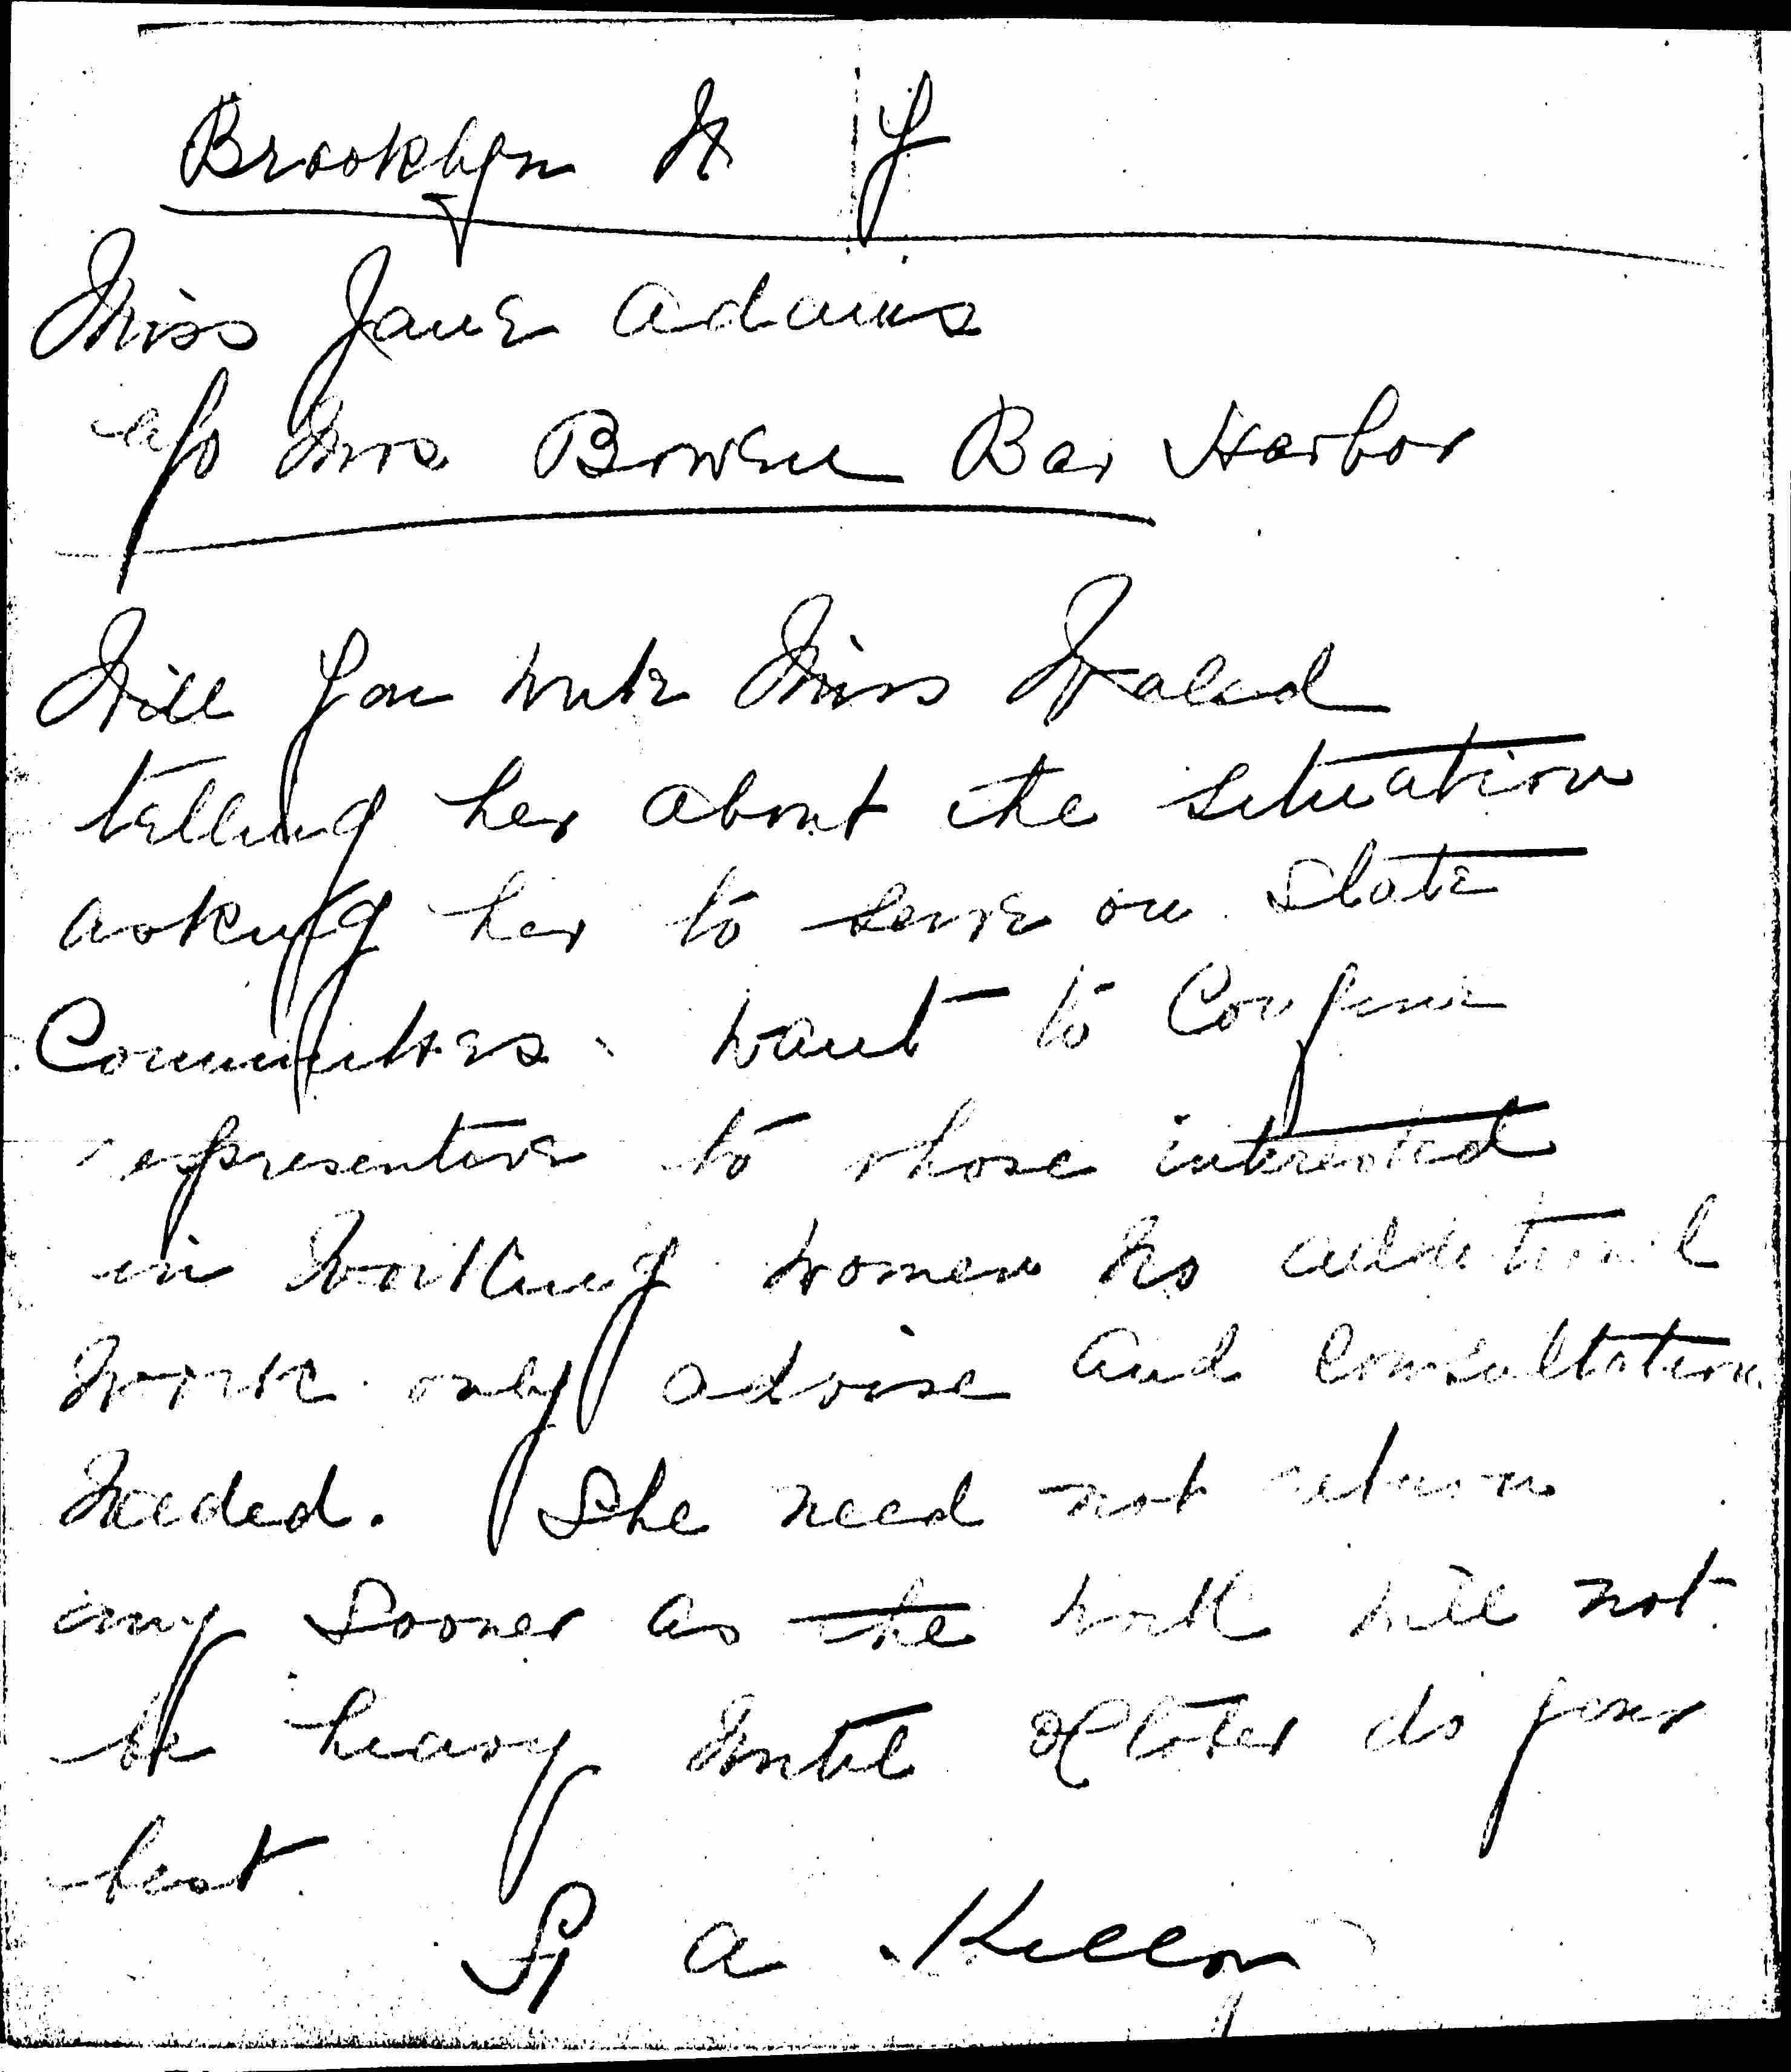 Brooklyn N Y
Miss Jane Adams
c/o Mrs Bowen Bar Harbor
Will you write Miss Wald
telling her about the situation
asking her to serve on State
Committees. want to Confine
representive to those interested
in Working women No additional
work only advise and Consultation
Needed. She need not return
any Sooner as the work will not
be heavy Until October do your
best.
F A Kellog